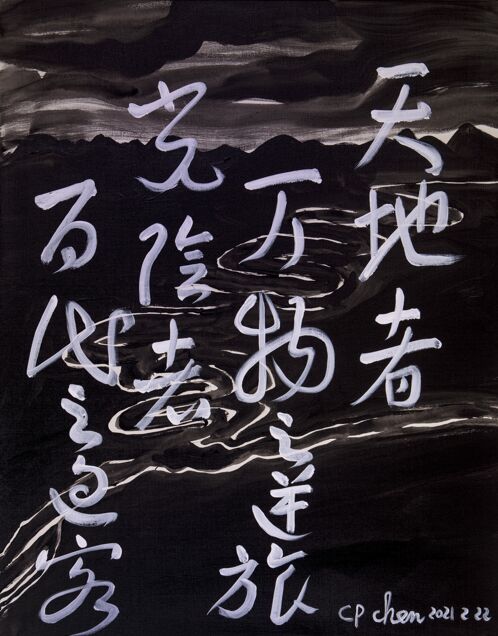 天地者
万物之逆旅
光陰者
百代之过客
CP chen 2021 2 22